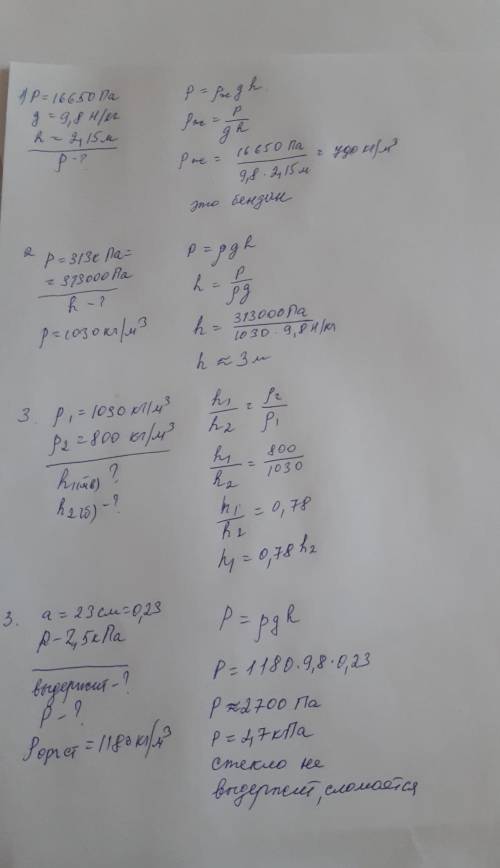 1) P = 16650 Па
g = 9,8 Н/кг
h = 2,15 м
ρ - ?
P = ρж g h
ρж = P / gh
ρж = 16650 Па / 9,8 · 2,15 м = 790 кг/м³
это бензин
2 P = 313к Па =
= 313000 Па
h - ?
ρ = 1030 кг/м³
P = ρgh
h = P / ρg
h = 313000 Па / 1030 · 9,8 Н/кг
h ≈ 3 м
3. ρ₁ = 1030 кг/м³
ρ₂ = 800 кг/м³
h₁ ?
h₂(б) - ?
h₁ / h₂ = ρ₂ / ρ₁
h₁ / h₂ = 800 / 1030
h₁ / h₂ = 0,78
h₁ = 0,78 h₂
3. a = 23 см = 0,23
p - 2,5 кПа
выдержит - ?
P - ?
ρоргст = 1180 кг/м³
P = ρgh
P = 1180 · 9,8 · 0,23
P ≈ 2700 Па
P = 2,7 кПа
стекло не
выдержит, сломается